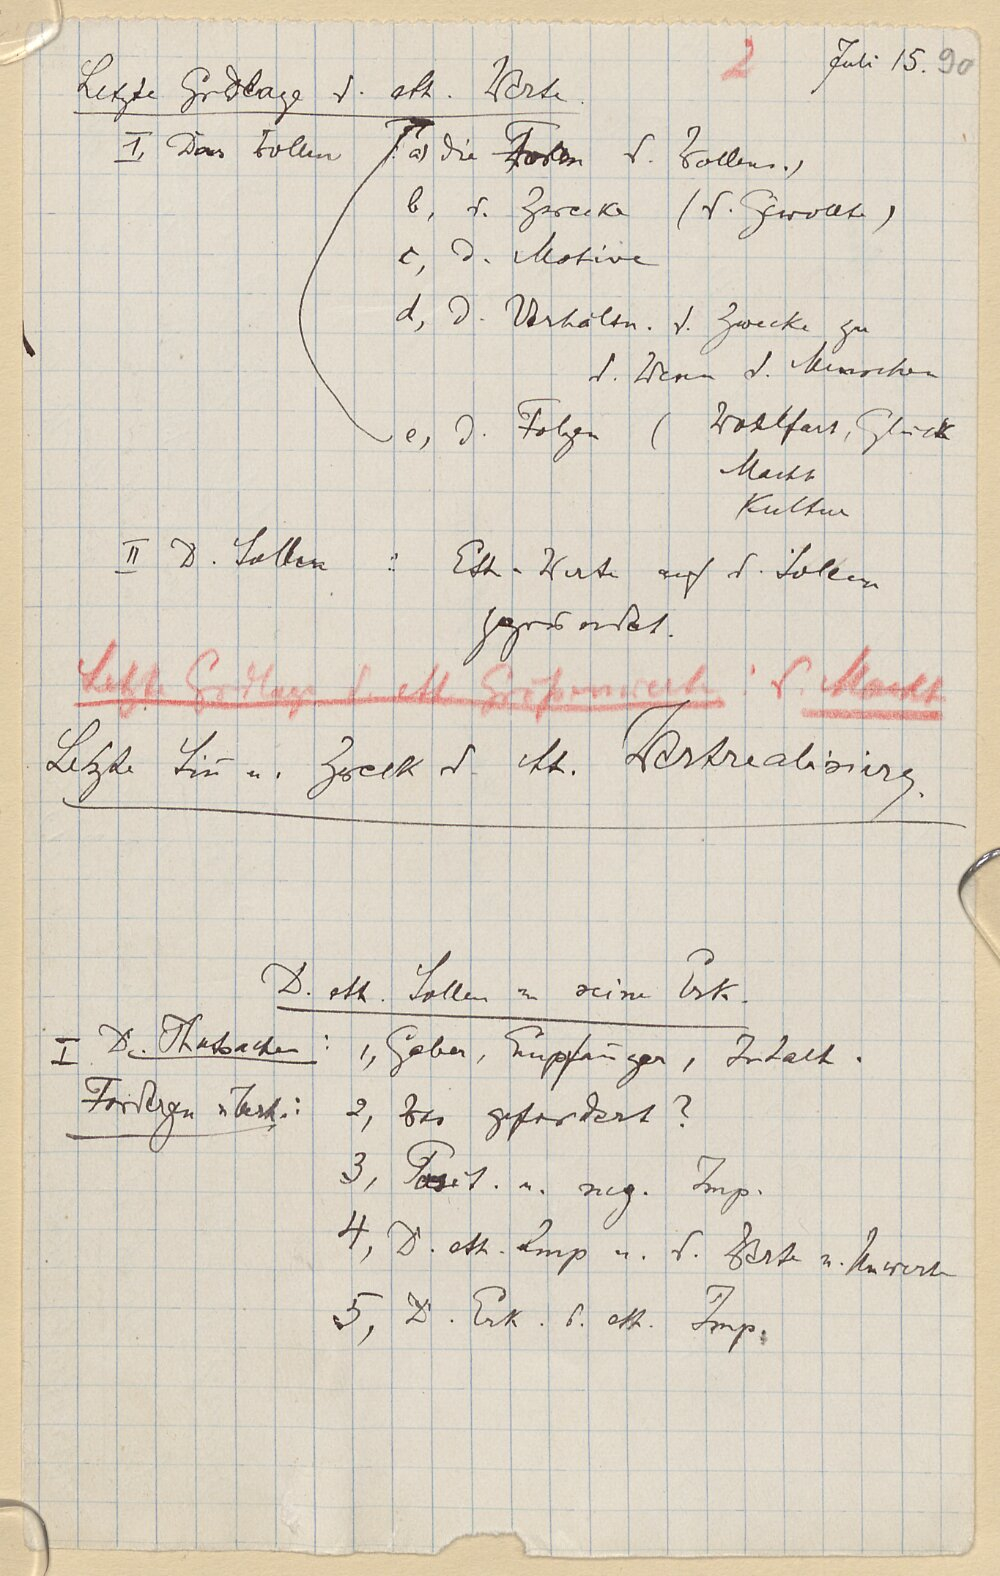 2 Juli 15. 90
Letzte Grdlage d. eth. Werte.
I, Das Wollen a, die Form d. Wollens.,
b, d. Zwecke (d. Gewollte)
c, d. Motive
d, d. Verhältn. d. Zwecke zu
d. Wesen d. Menschen
e, d. Folgen ( Wohlfart, Glück
Macht
Kultur
II D. Sollen : Eth. Werte auf d. Sollen
gegründet.
Letzte Grdlage d. eth. Größenwerte : d. Macht
Letzte Sin̄ u. Zweck d. eth. Wertrealisierg.
D. eth. Sollen u seine Erk.
I D. Thatsachen : 1, Geber, Empfänger, Inhalt.
Fordergen überh.: 2, Was gefordert?
3, Posit. u. neg. Imp.
4, D. eth. Imp u. d. Werte u. Unwerte
5, D. Erk. d. eth. Imp.